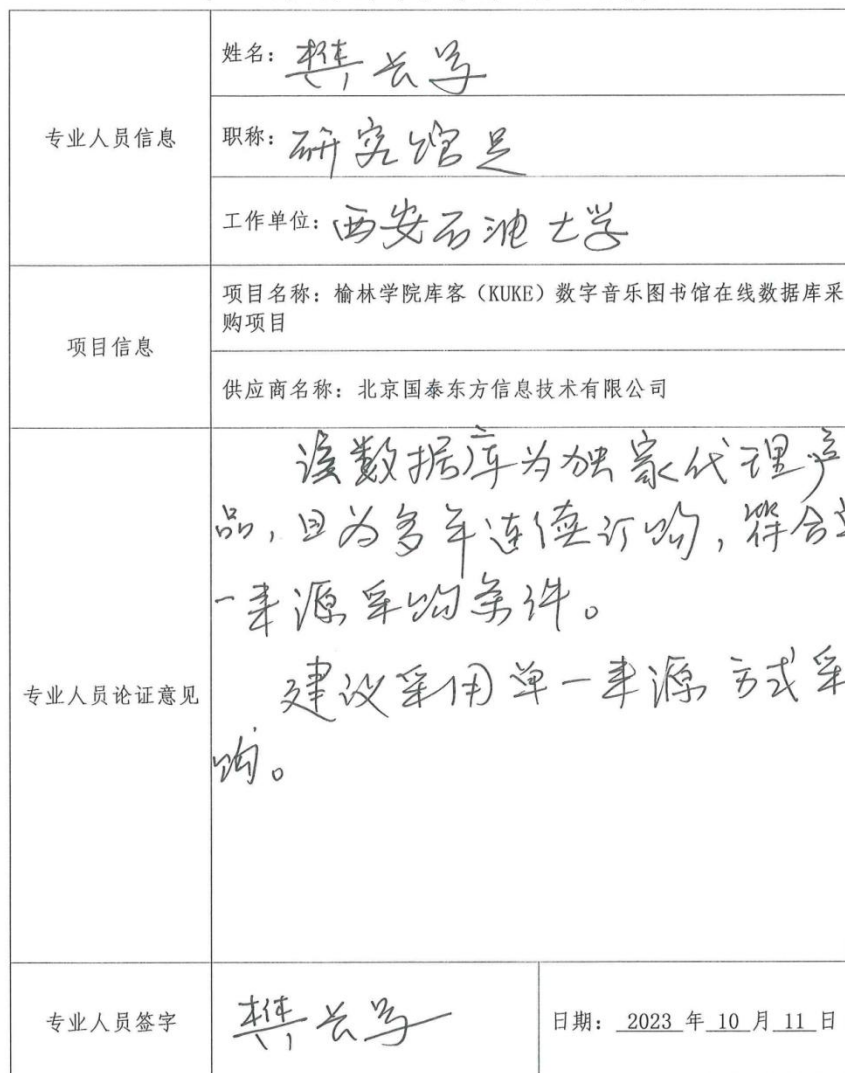 姓名：樊长军
专业人员信息
职称：研究馆员
工作单位：西安石油大学
项目信息
项目名称：榆林学院库客（KUKE）数字音乐图书馆在线数据库采
购项目
供应商名称：北京国泰东方信息技术有限公司
专业人员论证意见
该数据库为独家代理产
品，且为多年连续订购，符合单
一来源采购条件。
建议采用单一来源方式采
购。
专业人员签字
樊长军
日期：2023 年 10 月 11 日